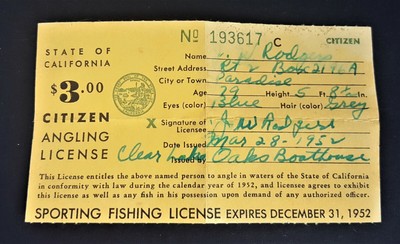 No 193617 C CITIZEN
STATE OF
CALIFORNIA
$3.00
CITIZEN
ANGLING
LICENSE
Name Rodgers
Street Address Rt 2 Box 2196A
City or Town Paradise
Age 79 Height 5 Ft. 8 In.
Eyes (color) Blue Hair (color) Grey
X Signature of
Licensee J W Rodgers
Date Issued Mar 28 - 1952
Issued by Clear Lake Oaks Boathouse
This License entitles the above named person to angle in waters of the State of California
in conformity with law during the calendar year of 1952, and licensee agrees to exhibit
this license as well as any fish in his possession upon demand of any authorized officer.
SPORTING FISHING LICENSE EXPIRES DECEMBER 31, 1952